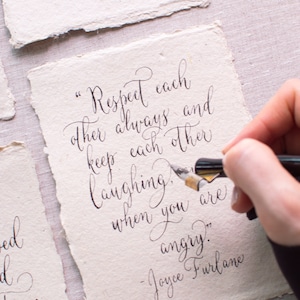 “Respect each
other always and
keep each other
laughing,
when you are
angry.”
-Joyce Furlane